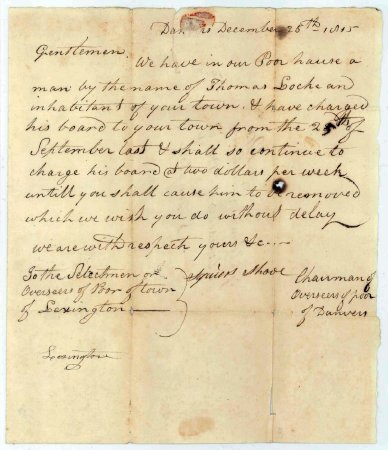 Danvers December 26th 1815
Gentlemen. We have in our Poor hause a
man by the name of Thomas Locke an
inhabitant of your town. & have charged
his board to your town from the 25th of
September last & shall so continue to
charge his board at two dollars per week
untill you shall cause him to be removed
which we wish you do without delay
we are with respech yours &c...
To the Selectmen or
Overseers of Poor of town
of Lexington
Shove
Chairman of
Overseers of poor
of Danvers
Lexington